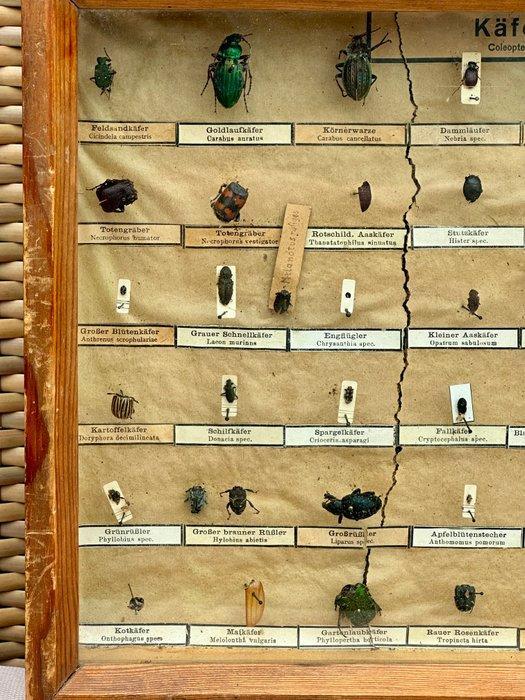 Käf
Coleopte
Feldsandkäfer
Cicindela campestris
Goldlaufkäfer
Carabus auratus
Körnerwarze
Carabus cancellatus
Dammläufer
Nebria spec.
Totengräber
Necrophorus humator
Totengräber
Necrophorus vestigator
Rotschild. Aaskäfer
Thanatatophilus sinuatus
Stutzkäfer
Hister spec.
Melanotus
Großer Blütenkäfer
Anthrenus scrophulariae
Grauer Schnellkäfer
Lacon murians
Engflügler
Chrysanthia spec.
Kleiner Aaskäfer
Opatrum sabulosum
Kartoffelkäfer
Doryphora decimlineata
Schilfkäfer
Donacia spec.
Spargelkäfer
Crioceris asparagi
Fallkäfer
Cryptocephalus spec.
Bla
Grünrüßler
Phyllobius spec.
Großer brauner Rüßler
Hylobius abietis
Großrüßler
Liparus spec.
Apfelblütenstecher
Anthomomus pomorum
Kotkäfer
Onthophagus spec.
Maikäfer
Melolontha vulgaris
Gartenlaubkäfer
Phyllopertha horticola
Rauer Rosenkäfer
Tropincta hirta